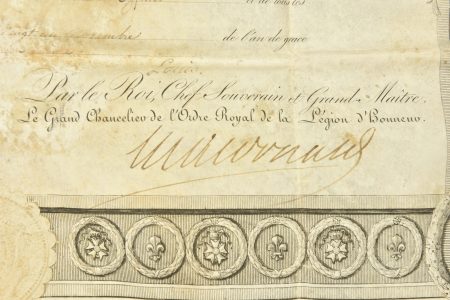 et de toutes
de l'an de grace
Louis
Par le Roi, Chef Souverain et Grand-Maître,
Le Grand Chancelier de l'Ordre Royal de la Légion d'Honneur.
Macdonald